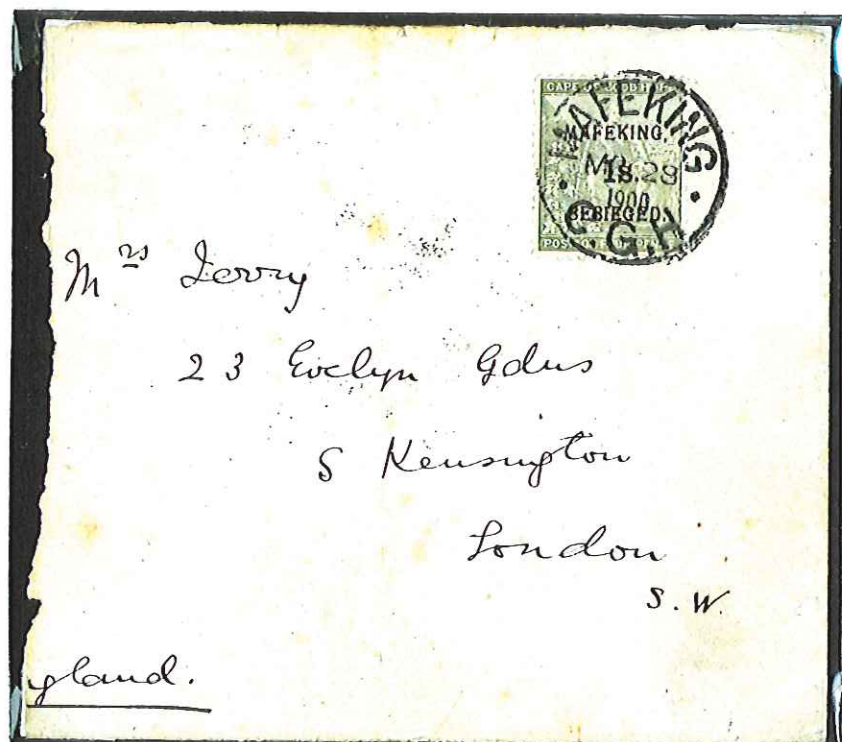 CAPE OF GOOD HOPE
MAFEKING
MAFEKING,
1s.
BESIEGED.
MR 28
1900
C.G.H
POSTAGE
Mrs
23 Evelyn Gdns
S Kensington
London
S.W.
gland.